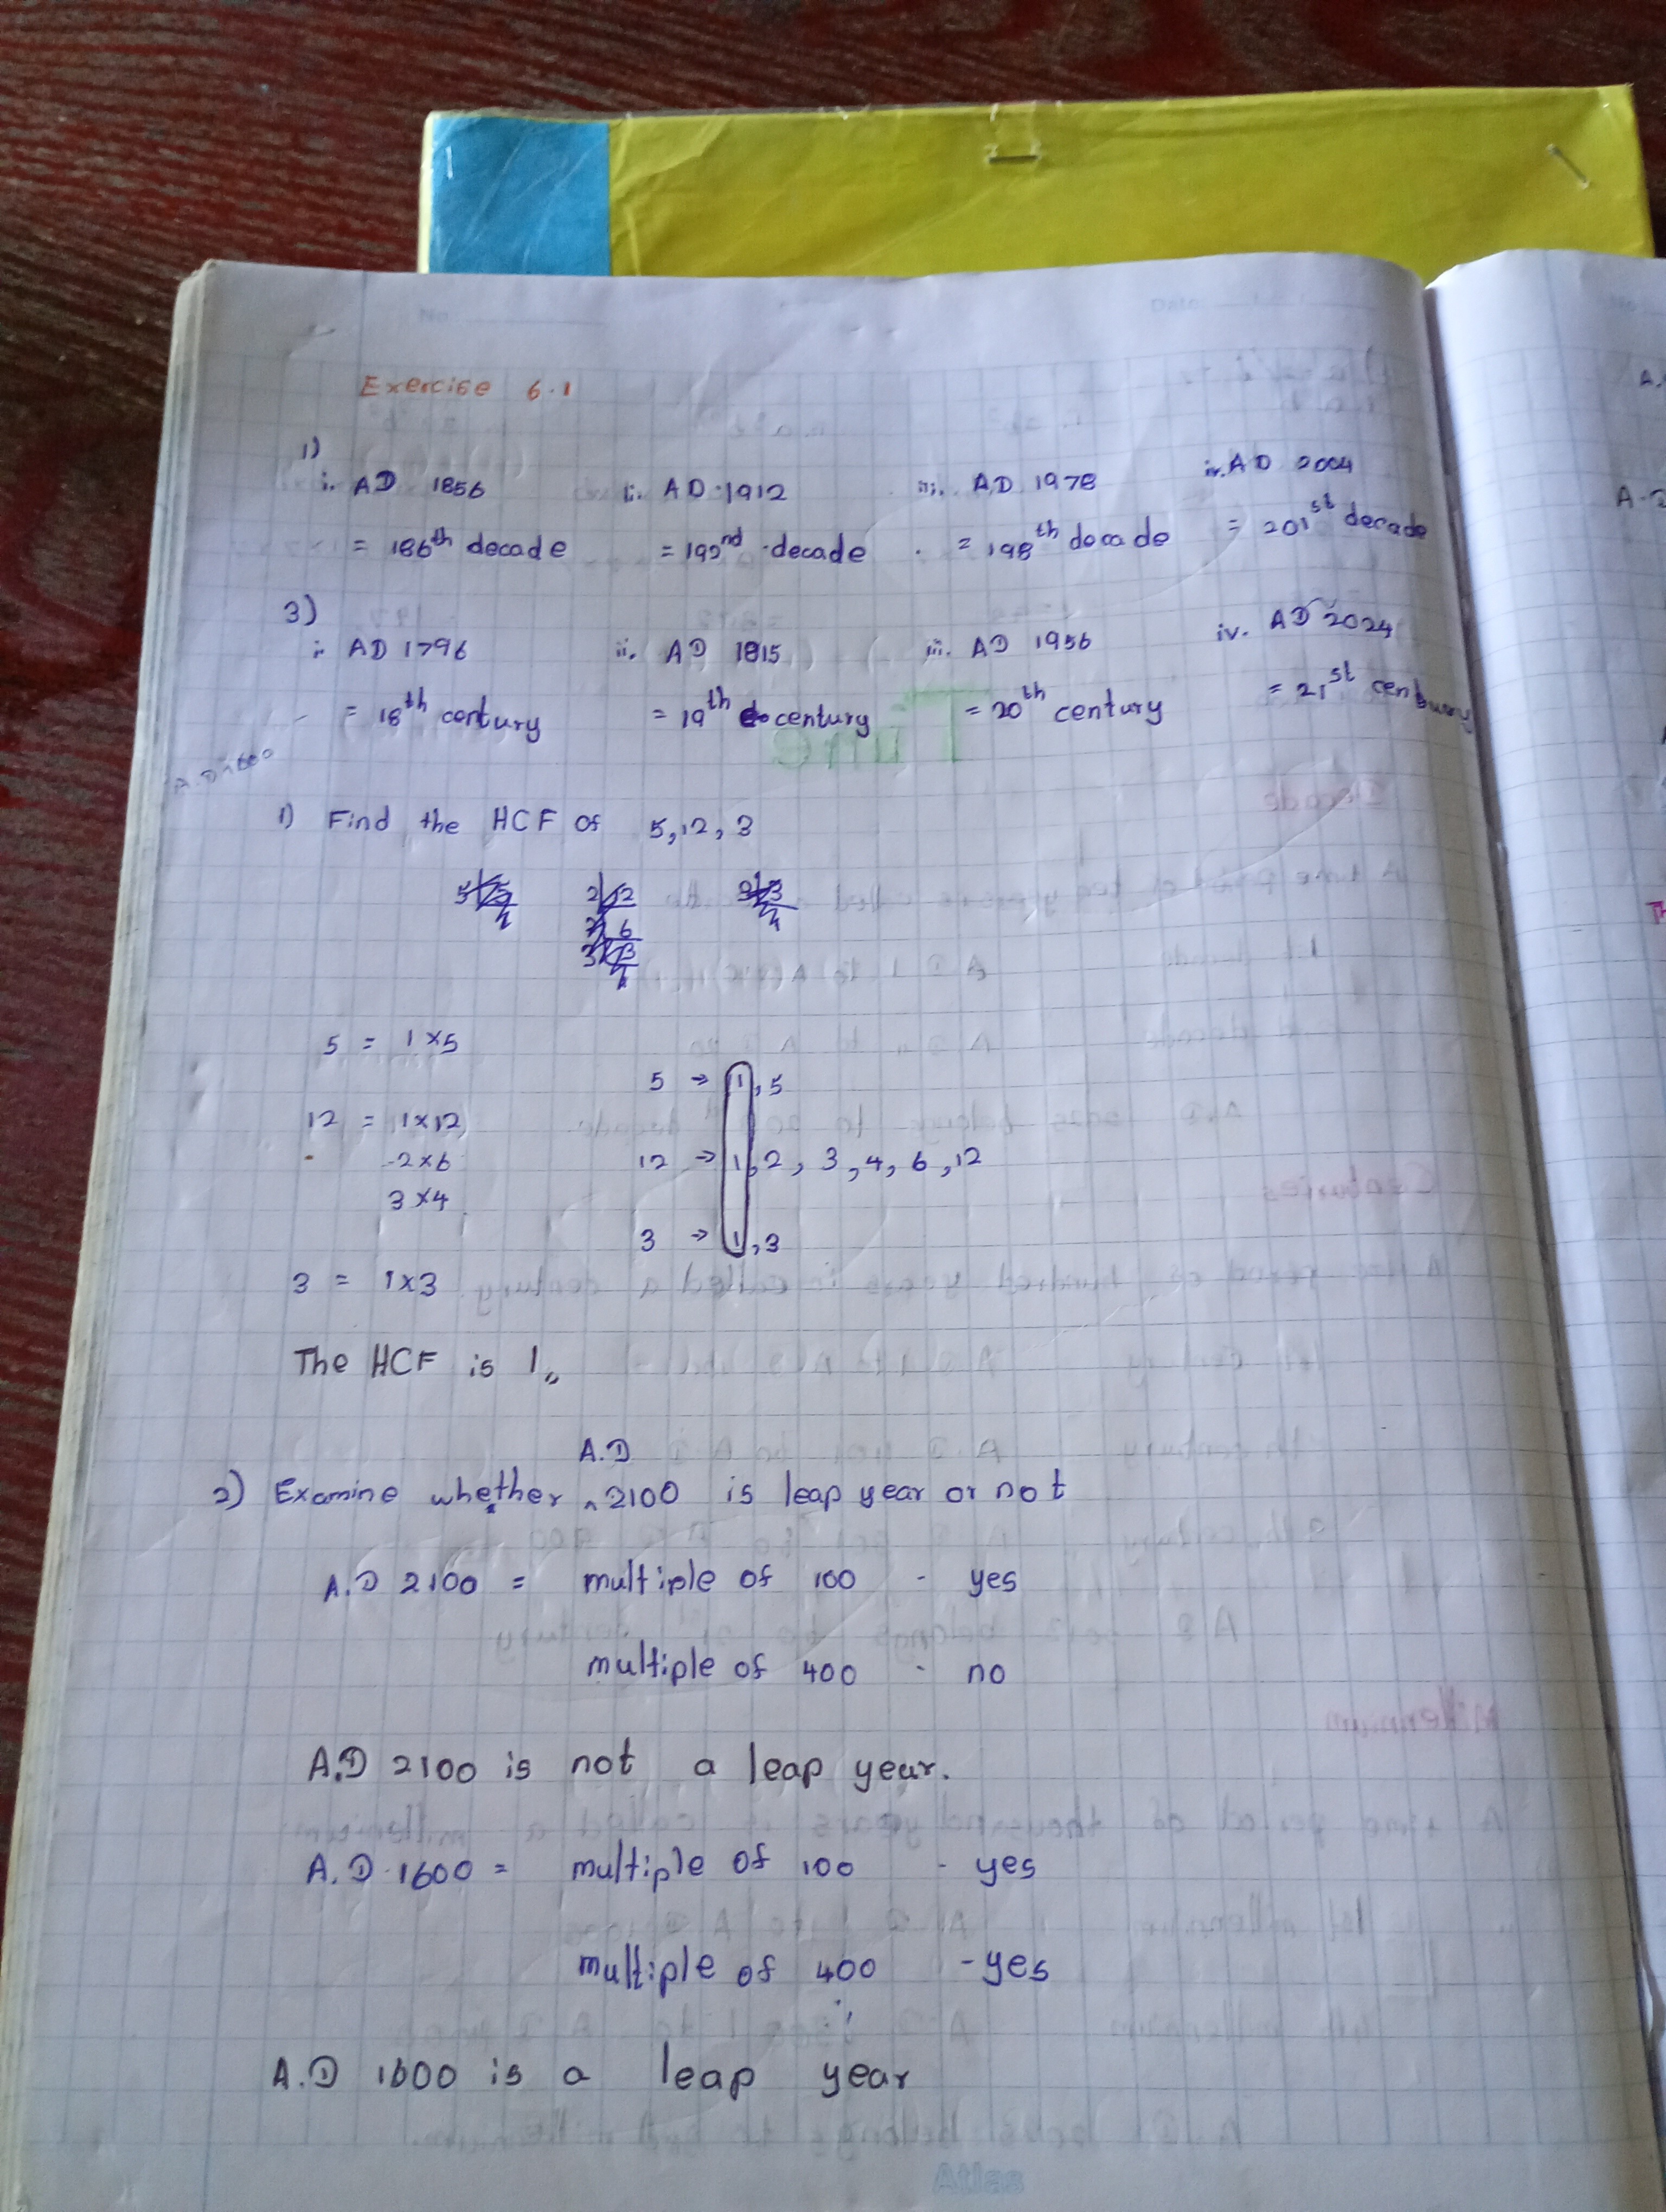 Exercise 6.1
1)
i. AD 1856 ii. AD 1912 iii. AD 1978 iv. AD 2004
= 186th decade = 192nd decade = 198th decade = 201st decade
3)
i. AD 1796 ii. AD 1815 iii. AD 1956 iv. AD 2024
= 18th century = 19th century = 20th century = 21st century
A.D 1600
1) Find the HCF of 5, 12, 3
5 = 1 × 5
5 → 1, 5
12 = 1 × 12
2 × 6
12 → 1, 2, 3, 4, 6, 12
3 × 4
3 → 1, 3
3 = 1 × 3
The HCF is 1
A.D
2) Examine whether ^ 2100 is leap year or not
A.D 2100 = multiple of 100 - yes
multiple of 400 - no
A.D 2100 is not a leap year.
A.D 1600 = multiple of 100 - yes
multiple of 400 - yes
A.D 1600 is a leap year
Atlas